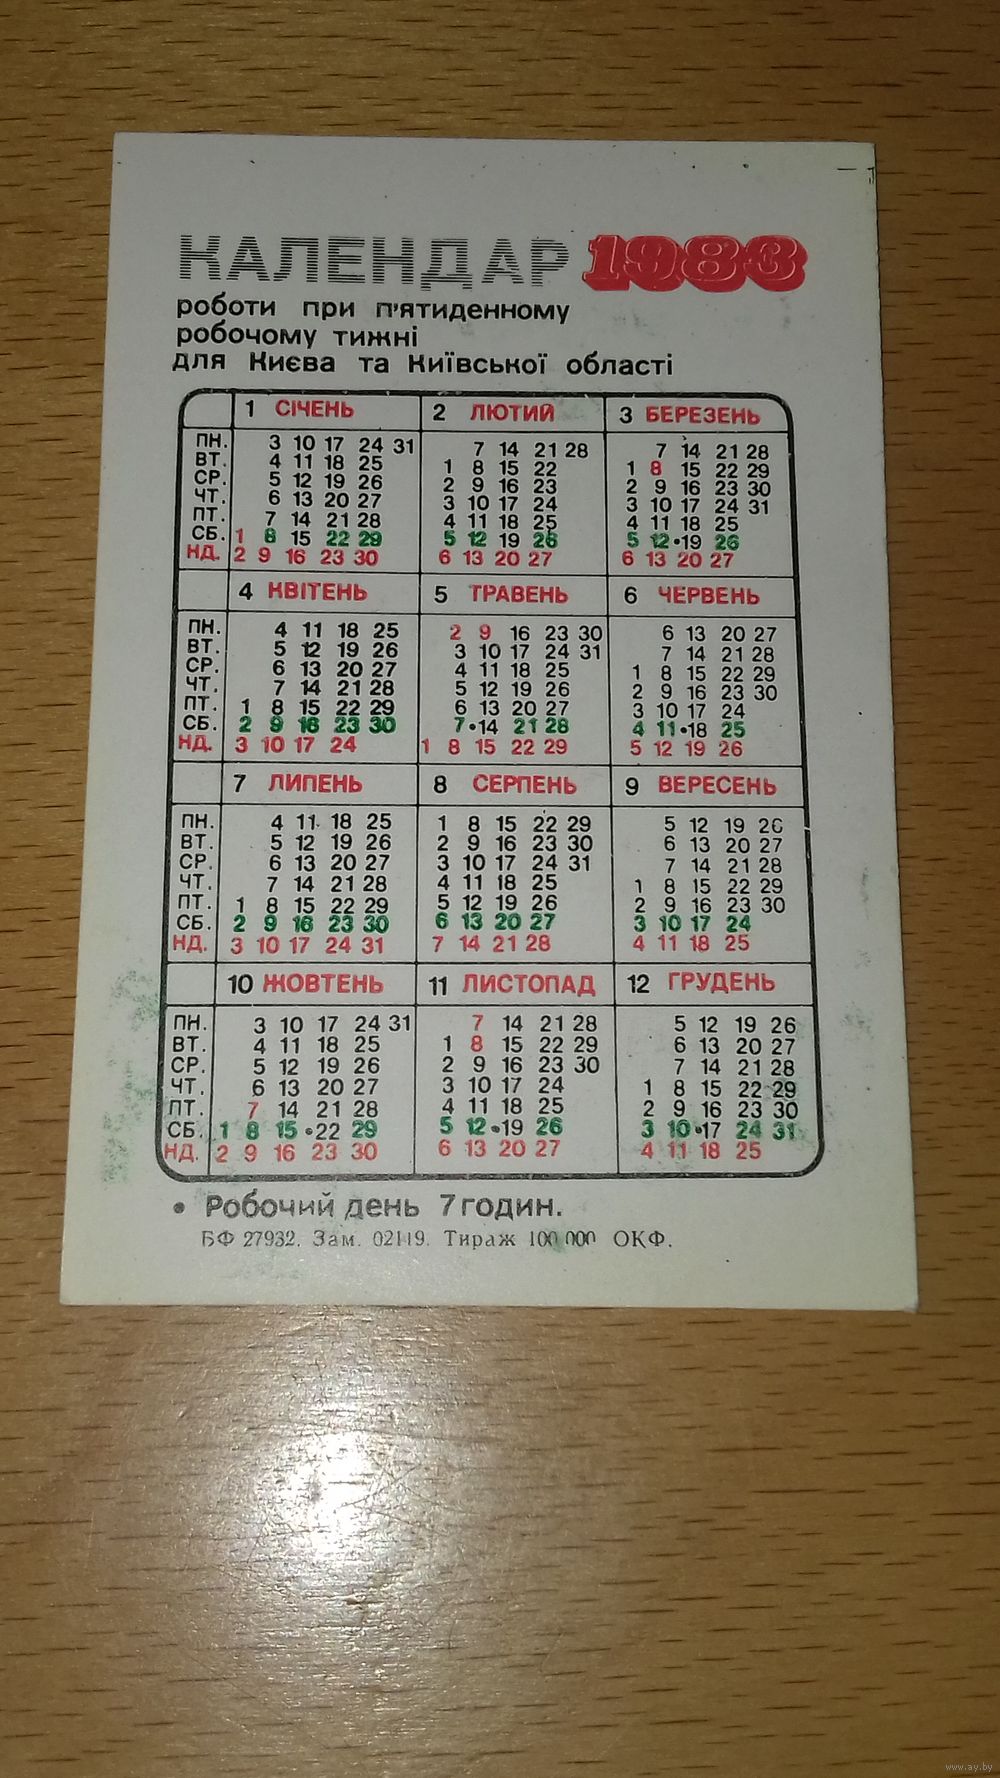 КАЛЕНДАР 1983
роботи при п'ятиденному
робочому тижні
для Києва та Київської області
1 СІЧЕНЬ 2 ЛЮТИЙ 3 БЕРЕЗЕНЬ
ПН. 3 10 17 24 31 7 14 21 28 7 14 21 28
ВТ. 4 11 18 25 1 8 15 22 1 8 15 22 29
СР. 5 12 19 26 2 9 16 23 2 9 16 23 30
ЧТ. 6 13 20 27 3 10 17 24 3 10 17 24 31
ПТ. 7 14 21 28 4 11 18 25 4 11 18 25
СБ. 1 8 15 22 29 5 12 19 26 5 12 •19 26
НД. 2 9 16 23 30 6 13 20 27 6 13 20 27
4 КВІТЕНЬ 5 ТРАВЕНЬ 6 ЧЕРВЕНЬ
ПН. 4 11 18 25 2 9 16 23 30 6 13 20 27
ВТ. 5 12 19 26 3 10 17 24 31 7 14 21 28
СР. 6 13 20 27 4 11 18 25 1 8 15 22 29
ЧТ. 7 14 21 28 5 12 19 26 2 9 16 23 30
ПТ. 1 8 15 22 29 6 13 20 27 3 10 17 24
СБ. 2 9 16 23 30 7 •14 21 28 4 11 •18 25
НД. 3 10 17 24 1 8 15 22 29 5 12 19 26
7 ЛИПЕНЬ 8 СЕРПЕНЬ 9 ВЕРЕСЕНЬ
ПН. 4 11 18 25 1 8 15 22 29 5 12 19 26
ВТ. 5 12 19 26 2 9 16 23 30 6 13 20 27
СР. 6 13 20 27 3 10 17 24 31 7 14 21 28
ЧТ. 7 14 21 28 4 11 18 25 1 8 15 22 29
ПТ. 1 8 15 22 29 5 12 19 26 2 9 16 23 30
СБ. 2 9 16 23 30 6 13 20 27 3 10 17 24
НД. 3 10 17 24 31 7 14 21 28 4 11 18 25
10 ЖОВТЕНЬ 11 ЛИСТОПАД 12 ГРУДЕНЬ
ПН. 3 10 17 24 31 7 14 21 28 5 12 19 26
ВТ. 4 11 18 25 1 8 15 22 29 6 13 20 27
СР. 5 12 19 26 2 9 16 23 30 7 14 21 28
ЧТ. 6 13 20 27 3 10 17 24 1 8 15 22 29
ПТ. 7 14 21 28 4 11 18 25 2 9 16 23 30
СБ. 1 8 15 •22 29 5 12 •19 26 3 10 •17 24 31
НД. 2 9 16 23 30 6 13 20 27 4 11 18 25
• Робочий день 7 годин.
БФ 27932. Зам. 02119. Тираж 100 000 ОКФ.
www.ay.by